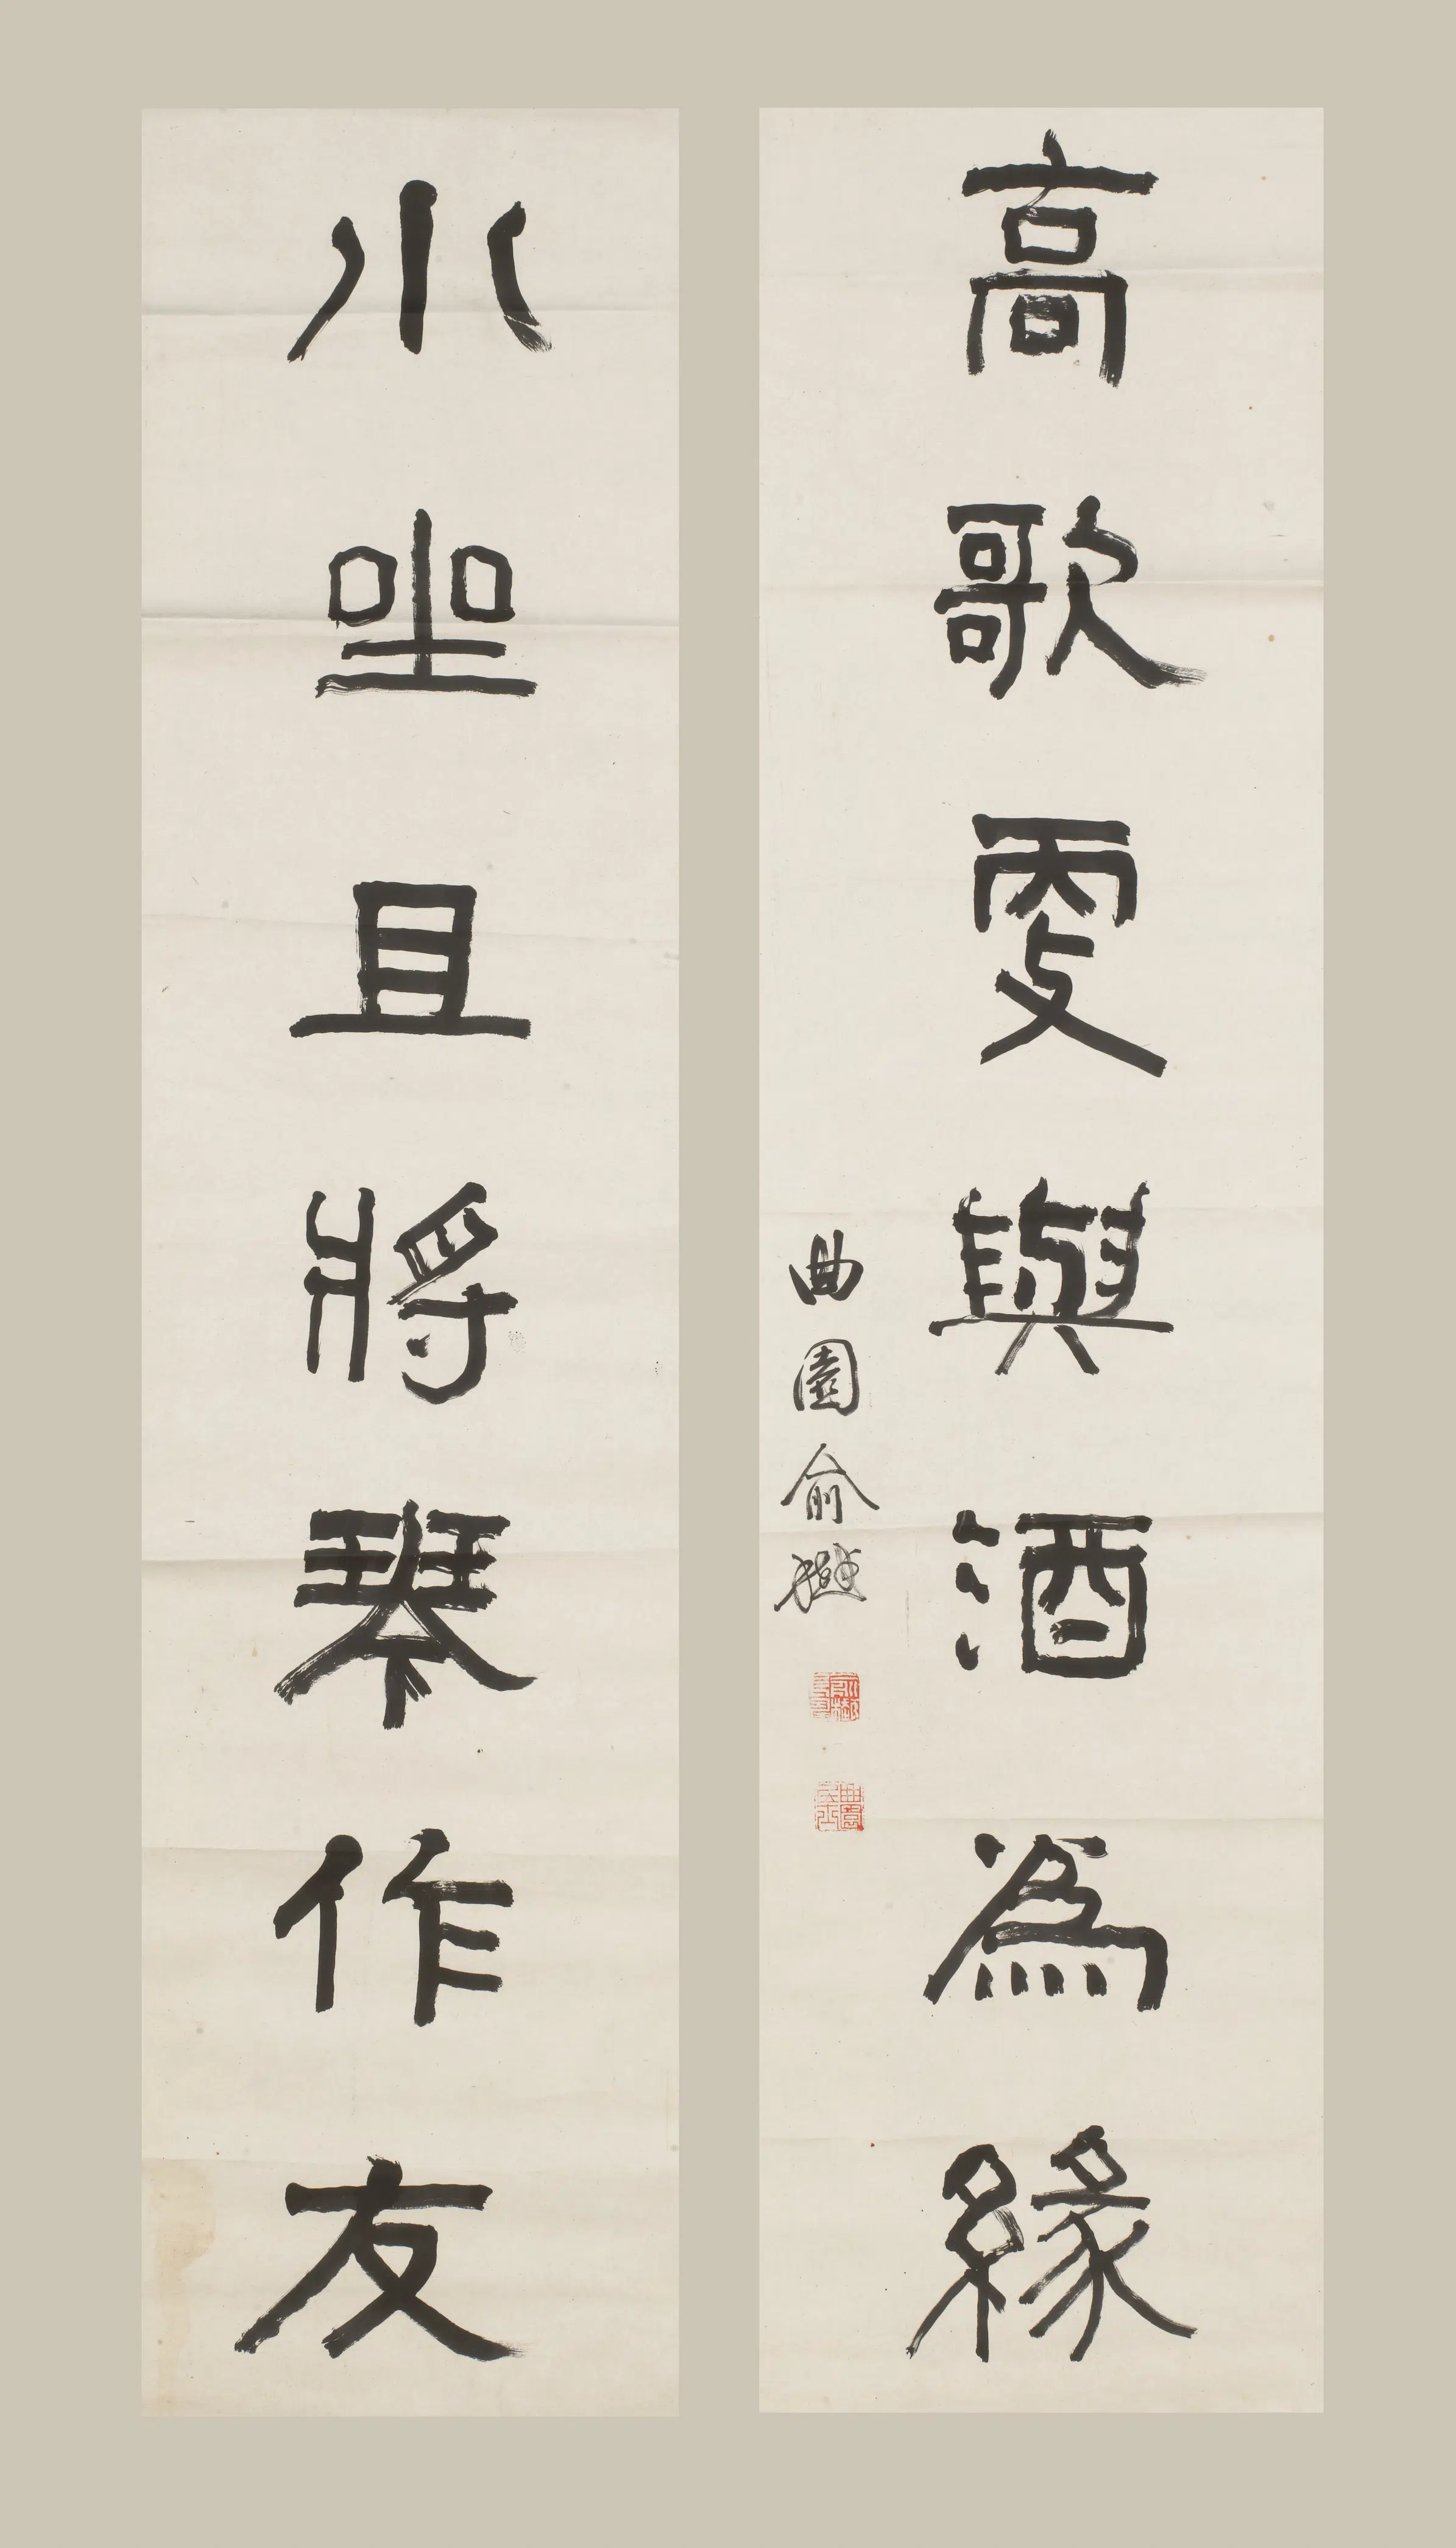 小坐且將琴作友
高歌更與酒為緣
曲園俞樾